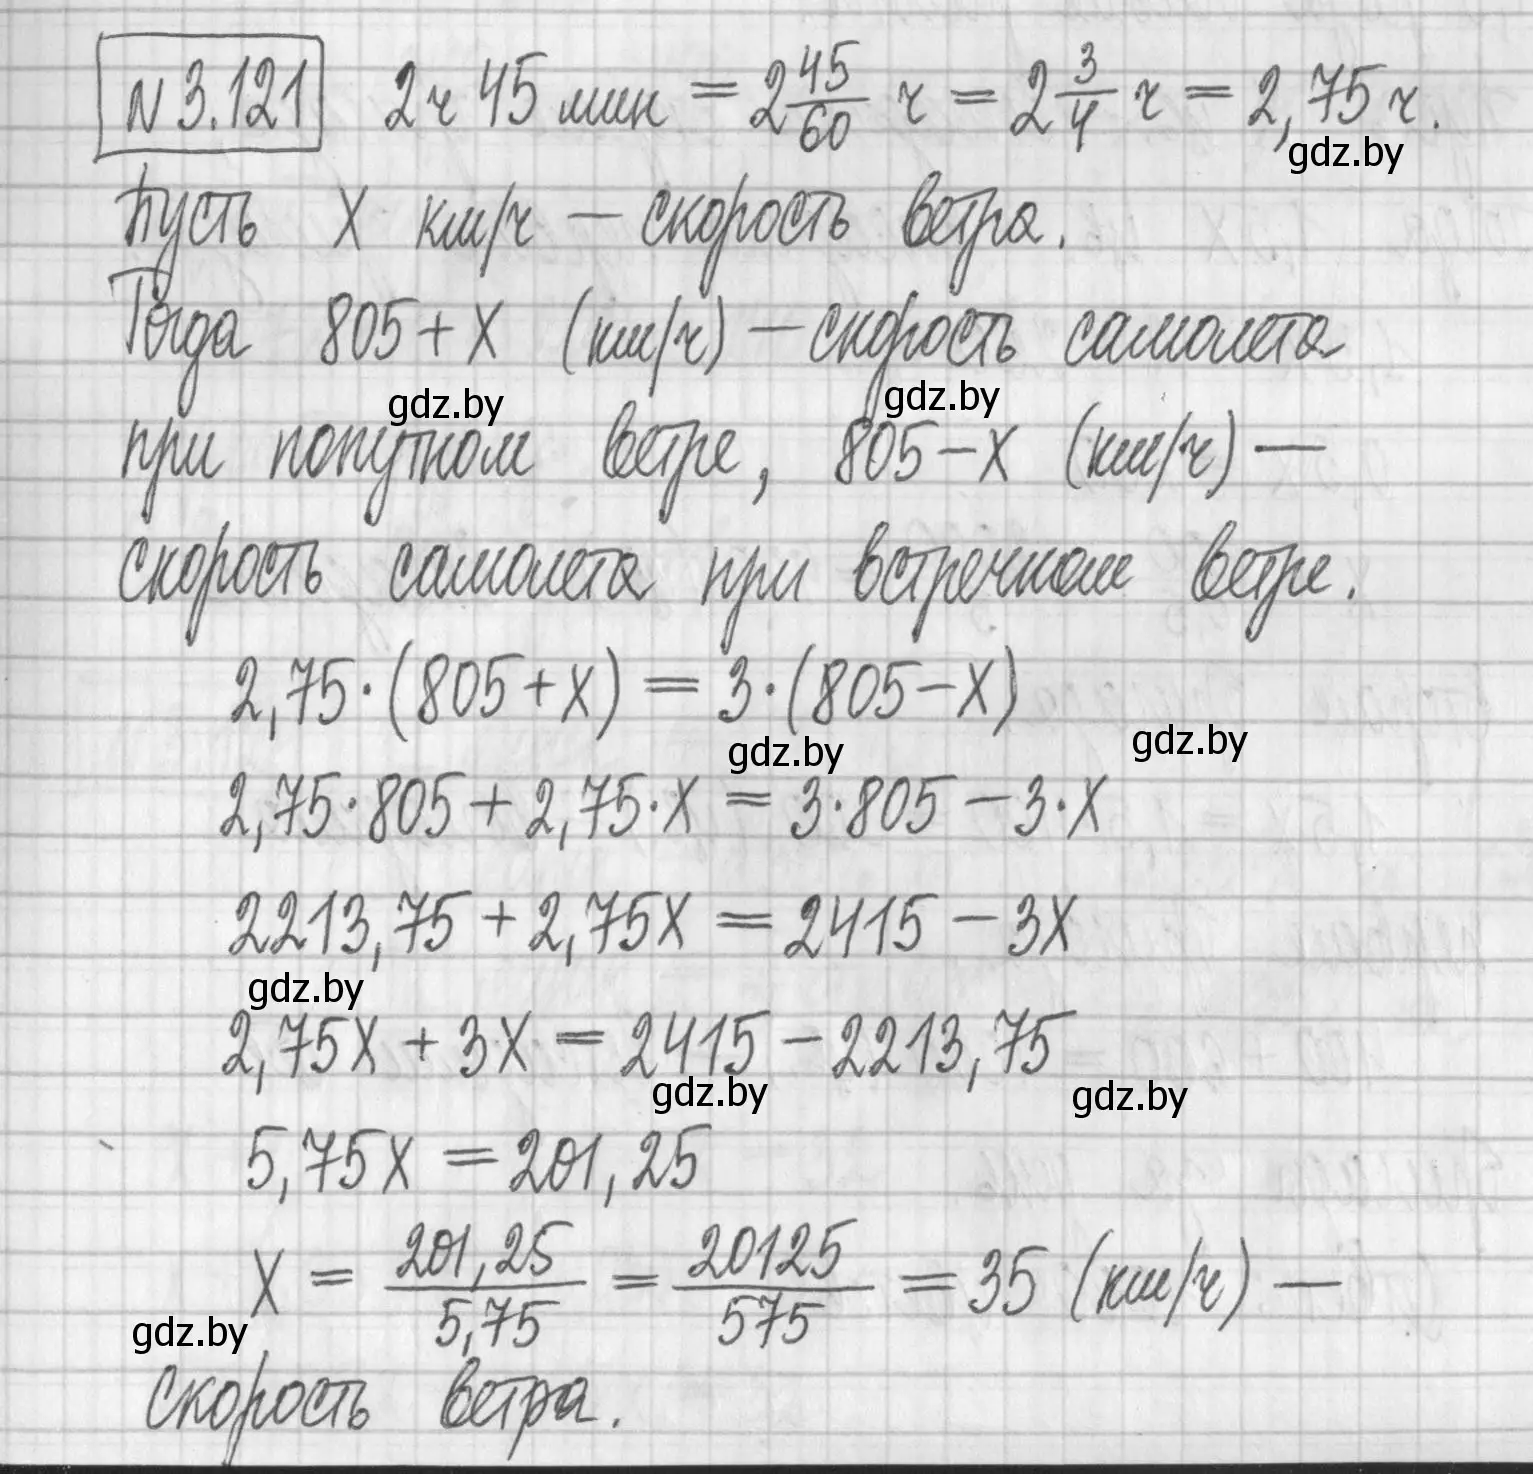 N 3.121 2 ч 45 мин = 2 45/60 ч = 2 3/4 ч = 2,75 ч.
gdz.by
Пусть x км/ч – скорость ветра.
Тогда 805 + x (км/ч) – скорость самолета
gdz.by gdz.by
при попутном ветре, 805 – x (км/ч) –
скорость самолета при встречном ветре.
2,75 · (805 + x) = 3 · (805 – x)
gdz.by gdz.by
2,75 · 805 + 2,75 · x = 3 · 805 – 3 · x
2213,75 + 2,75x = 2415 – 3x
gdz.by
2,75x + 3x = 2415 – 2213,75
gdz.by gdz.by
5,75x = 201,25
x = 201,25/5,75 = 20125/575 = 35 (км/ч) –
gdz.by
скорость ветра.